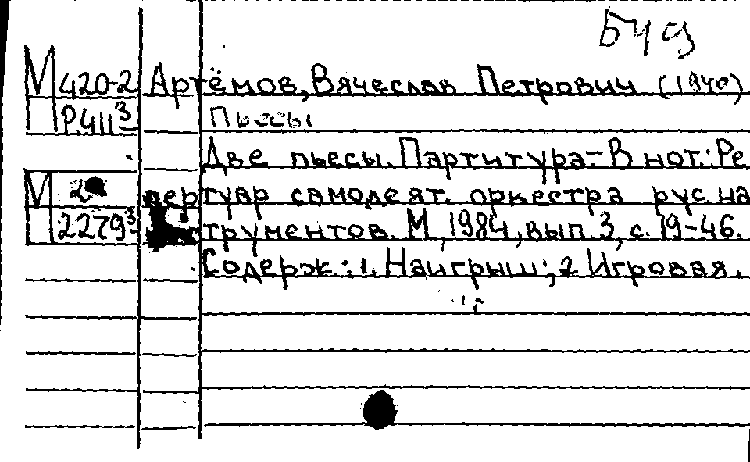 М 420-2 Артёмов, Вячеслав Петрович (1940)
Р.411³ Пьесы
Две пьесы. Партитура.- В нот.: Ре
М 2 пертуар самодеят. оркестра рус. на
2279³ струментов. М., 1984, вып. 3, с. 19-46.
Содерж: 1. Наигрыш; 2 Игровая.